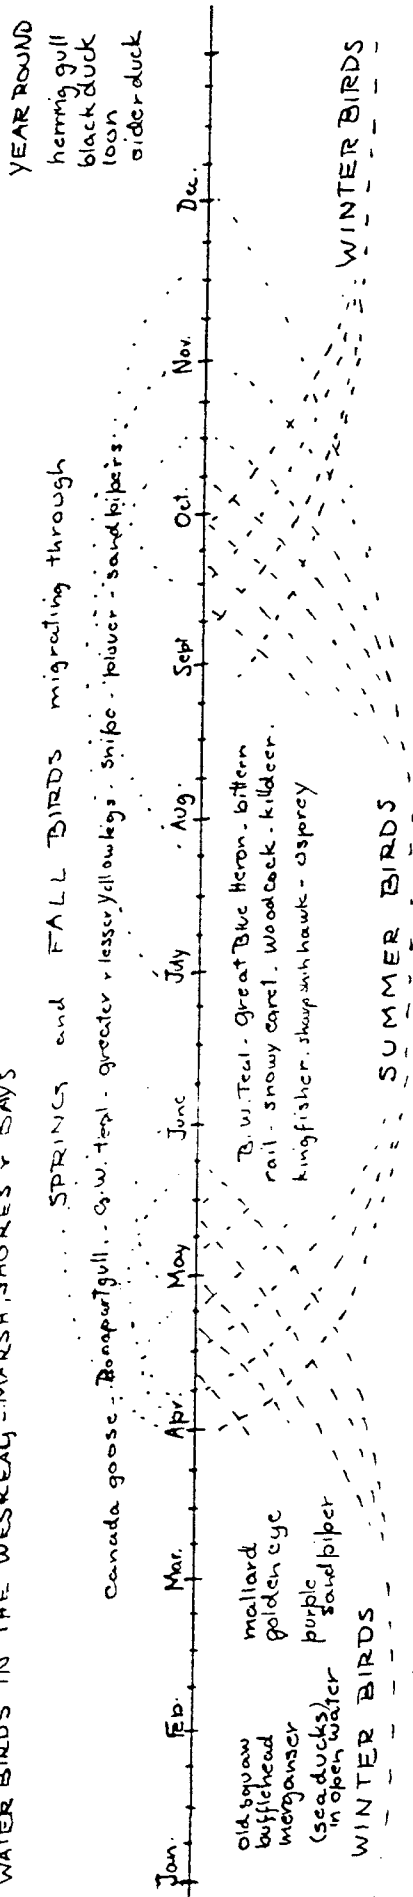 WATER BIRDS IN THE WESKEAG - MARSH, SHORES & BAYS
YEAR ROUND
herring gull
black duck
loon
eider duck
SPRING and FALL BIRDS migrating through
Canada goose - Bonapart gull - G.W. teal - greater & lesser yellowlegs - snipe - plover - sandpipers
Jan. Feb. Mar. Apr. May June July Aug. Sept Oct. Nov. Dec.
old squaw
bufflehead
merganser
(seaducks)
in open water
mallard
golden eye
purple
sandpiper
B.W. Teal - Great Blue Heron - bittern
rail - snowy egret - woodcock - killdeer.
kingfisher. sharpshin hawk - osprey
WINTER BIRDS
SUMMER BIRDS
WINTER BIRDS